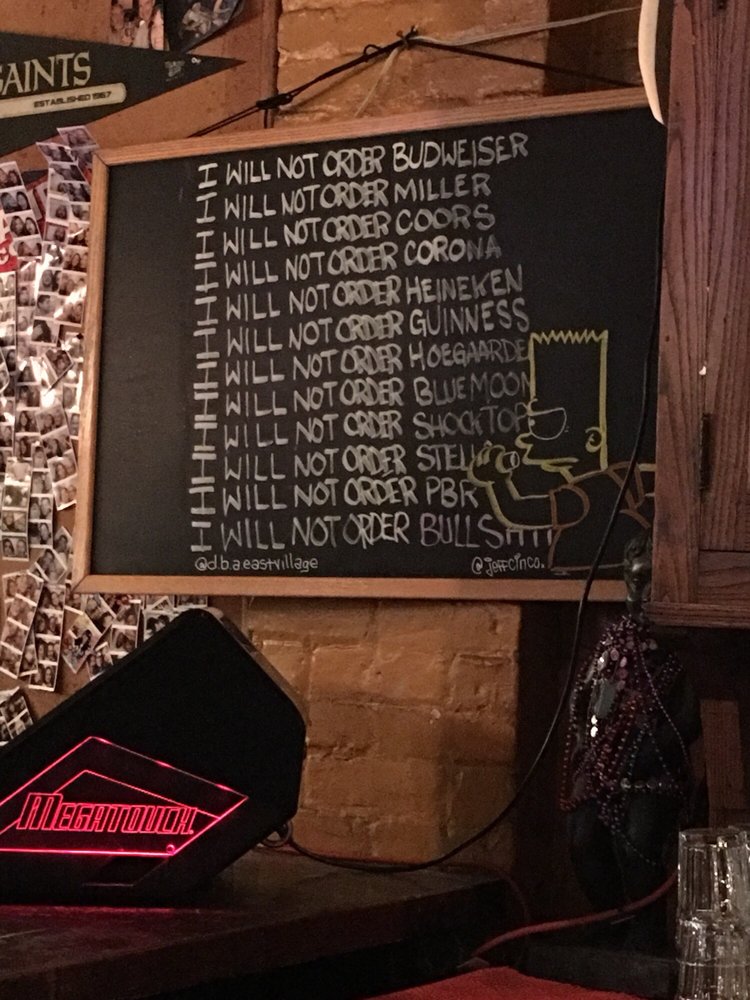 SAINTS
ESTABLISHED 1967
I WILL NOT ORDER BUDWEISER
I WILL NOT ORDER MILLER
I WILL NOT ORDER COORS
I WILL NOT ORDER CORONA
I WILL NOT ORDER HEINEKEN
I WILL NOT ORDER GUINNESS
I WILL NOT ORDER HOEGAARDE
I WILL NOT ORDER BLUE MOON
I WILL NOT ORDER SHOCKTOP
I WILL NOT ORDER STELL
I WILL NOT ORDER PBR
I WILL NOT ORDER BULLSHIT
@d.b.a.eastvillage
@jeffcinco.
MEGATOUCH